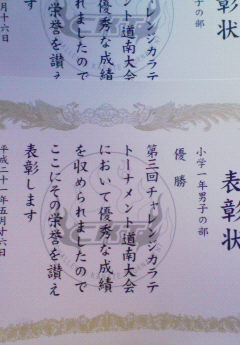 彰状
子の部
レンジカラテ
ント道南大会
優秀な成績
れましたので
の栄誉を讃え
月十六日
表彰状
小学一年男子の部
優勝
第三回チャレンジカラテ
トーナメント道南大会
において優秀な成績
を収められましたので
ここにその栄誉を讃え
表彰します
平成二十一年五月十六日